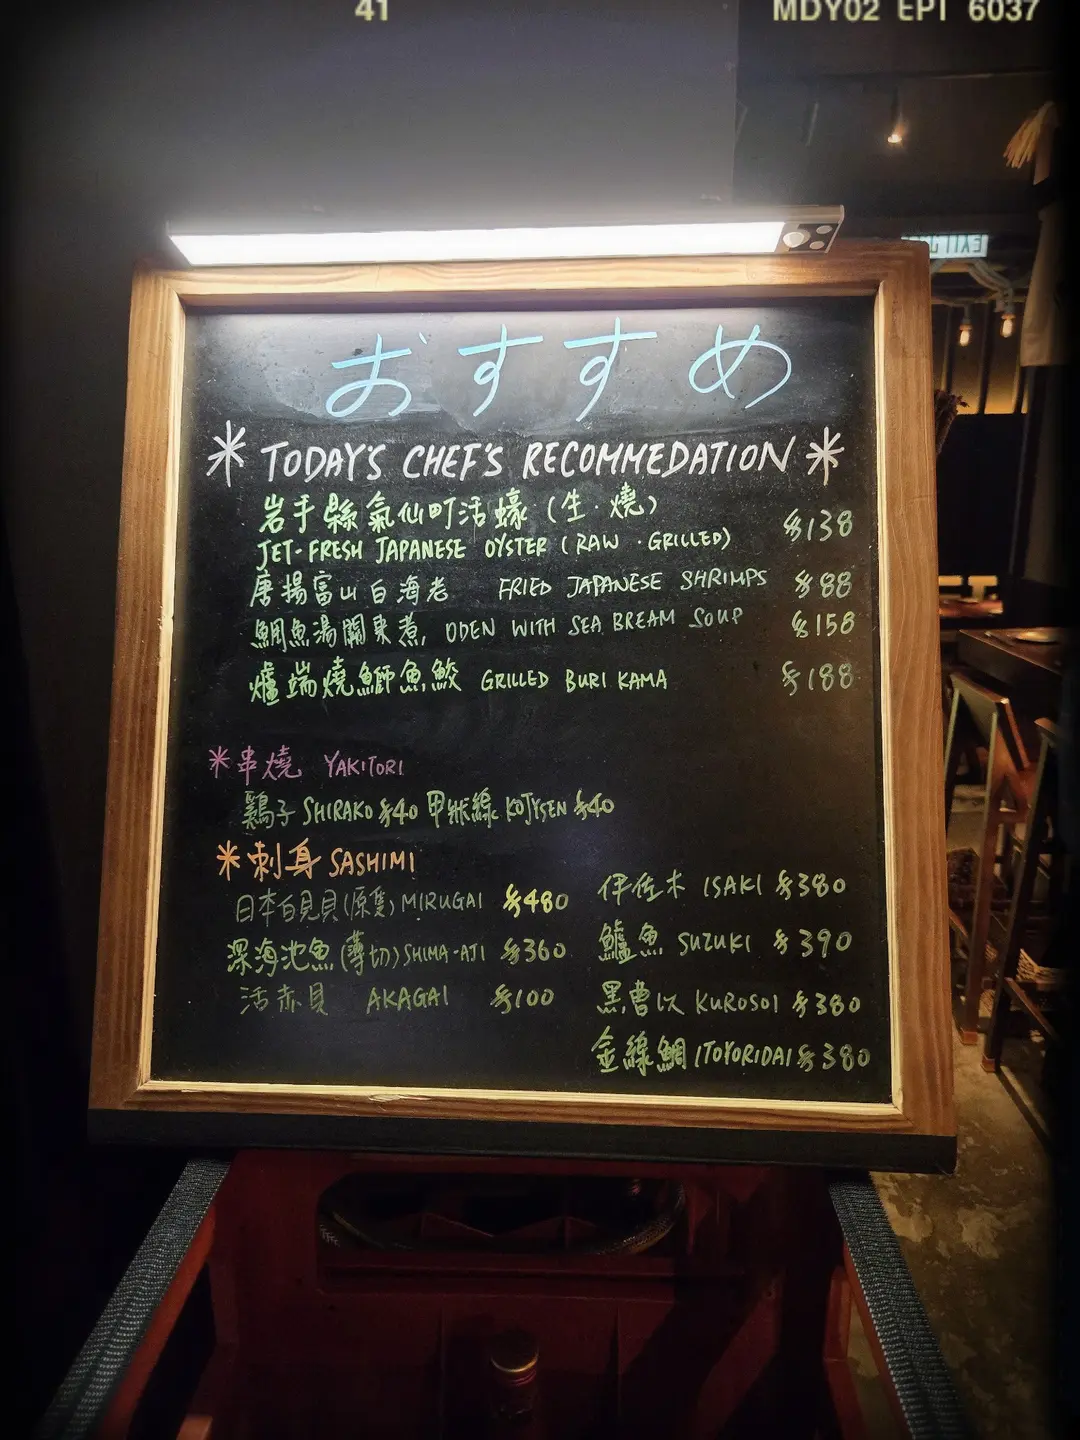 41 MDY02 EPI 6037
EXIT
おすすめ
*TODAY'S CHEF'S RECOMMEDATION*
岩手縣氣仙町活蠔(生·燒)
JET-FRESH JAPANESE OYSTER (RAW · GRILLED) $138
唐揚富山白海老 FRIED JAPANESE SHRIMPS $88
鯛魚湯關東煮, ODEN WITH SEA BREAM SOUP $158
爐端燒鰤魚鮫 GRILLED BURI KAMA $188
*串燒 YAKITORI
鷄子 SHIRAKO $40 甲狀線 KOJYSEN $40
*刺身 SASHIMI
日本白見貝(原隻) MIRUGAI $480
深海池魚(薄切) SHIMA-AJI $360
活赤貝 AKAGAI $100
伊佐木 ISAKI $380
鱸魚 SUZUKI $390
黑曹以 KUROSOI $380
金線鯛 ITOYORIDAI $380